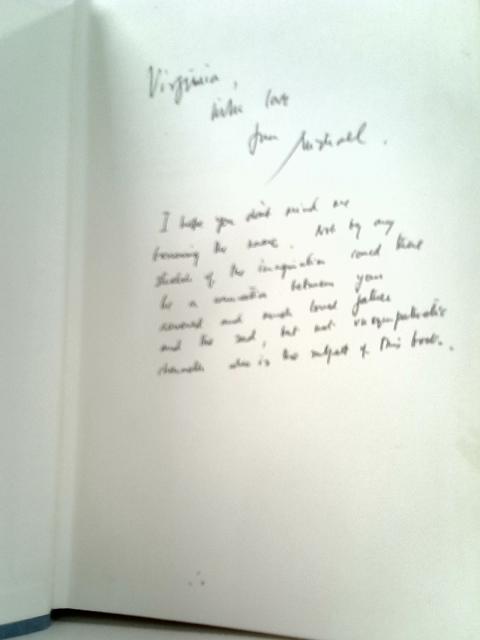 Virginia,
with love
from Michael.
I hope you don't mind me
borrowing the name. Not by any
stretch of the imagination could there
be a connection between your
revered and much loved father
and the sad, but not unsympathetic
character who is the subject of this book.